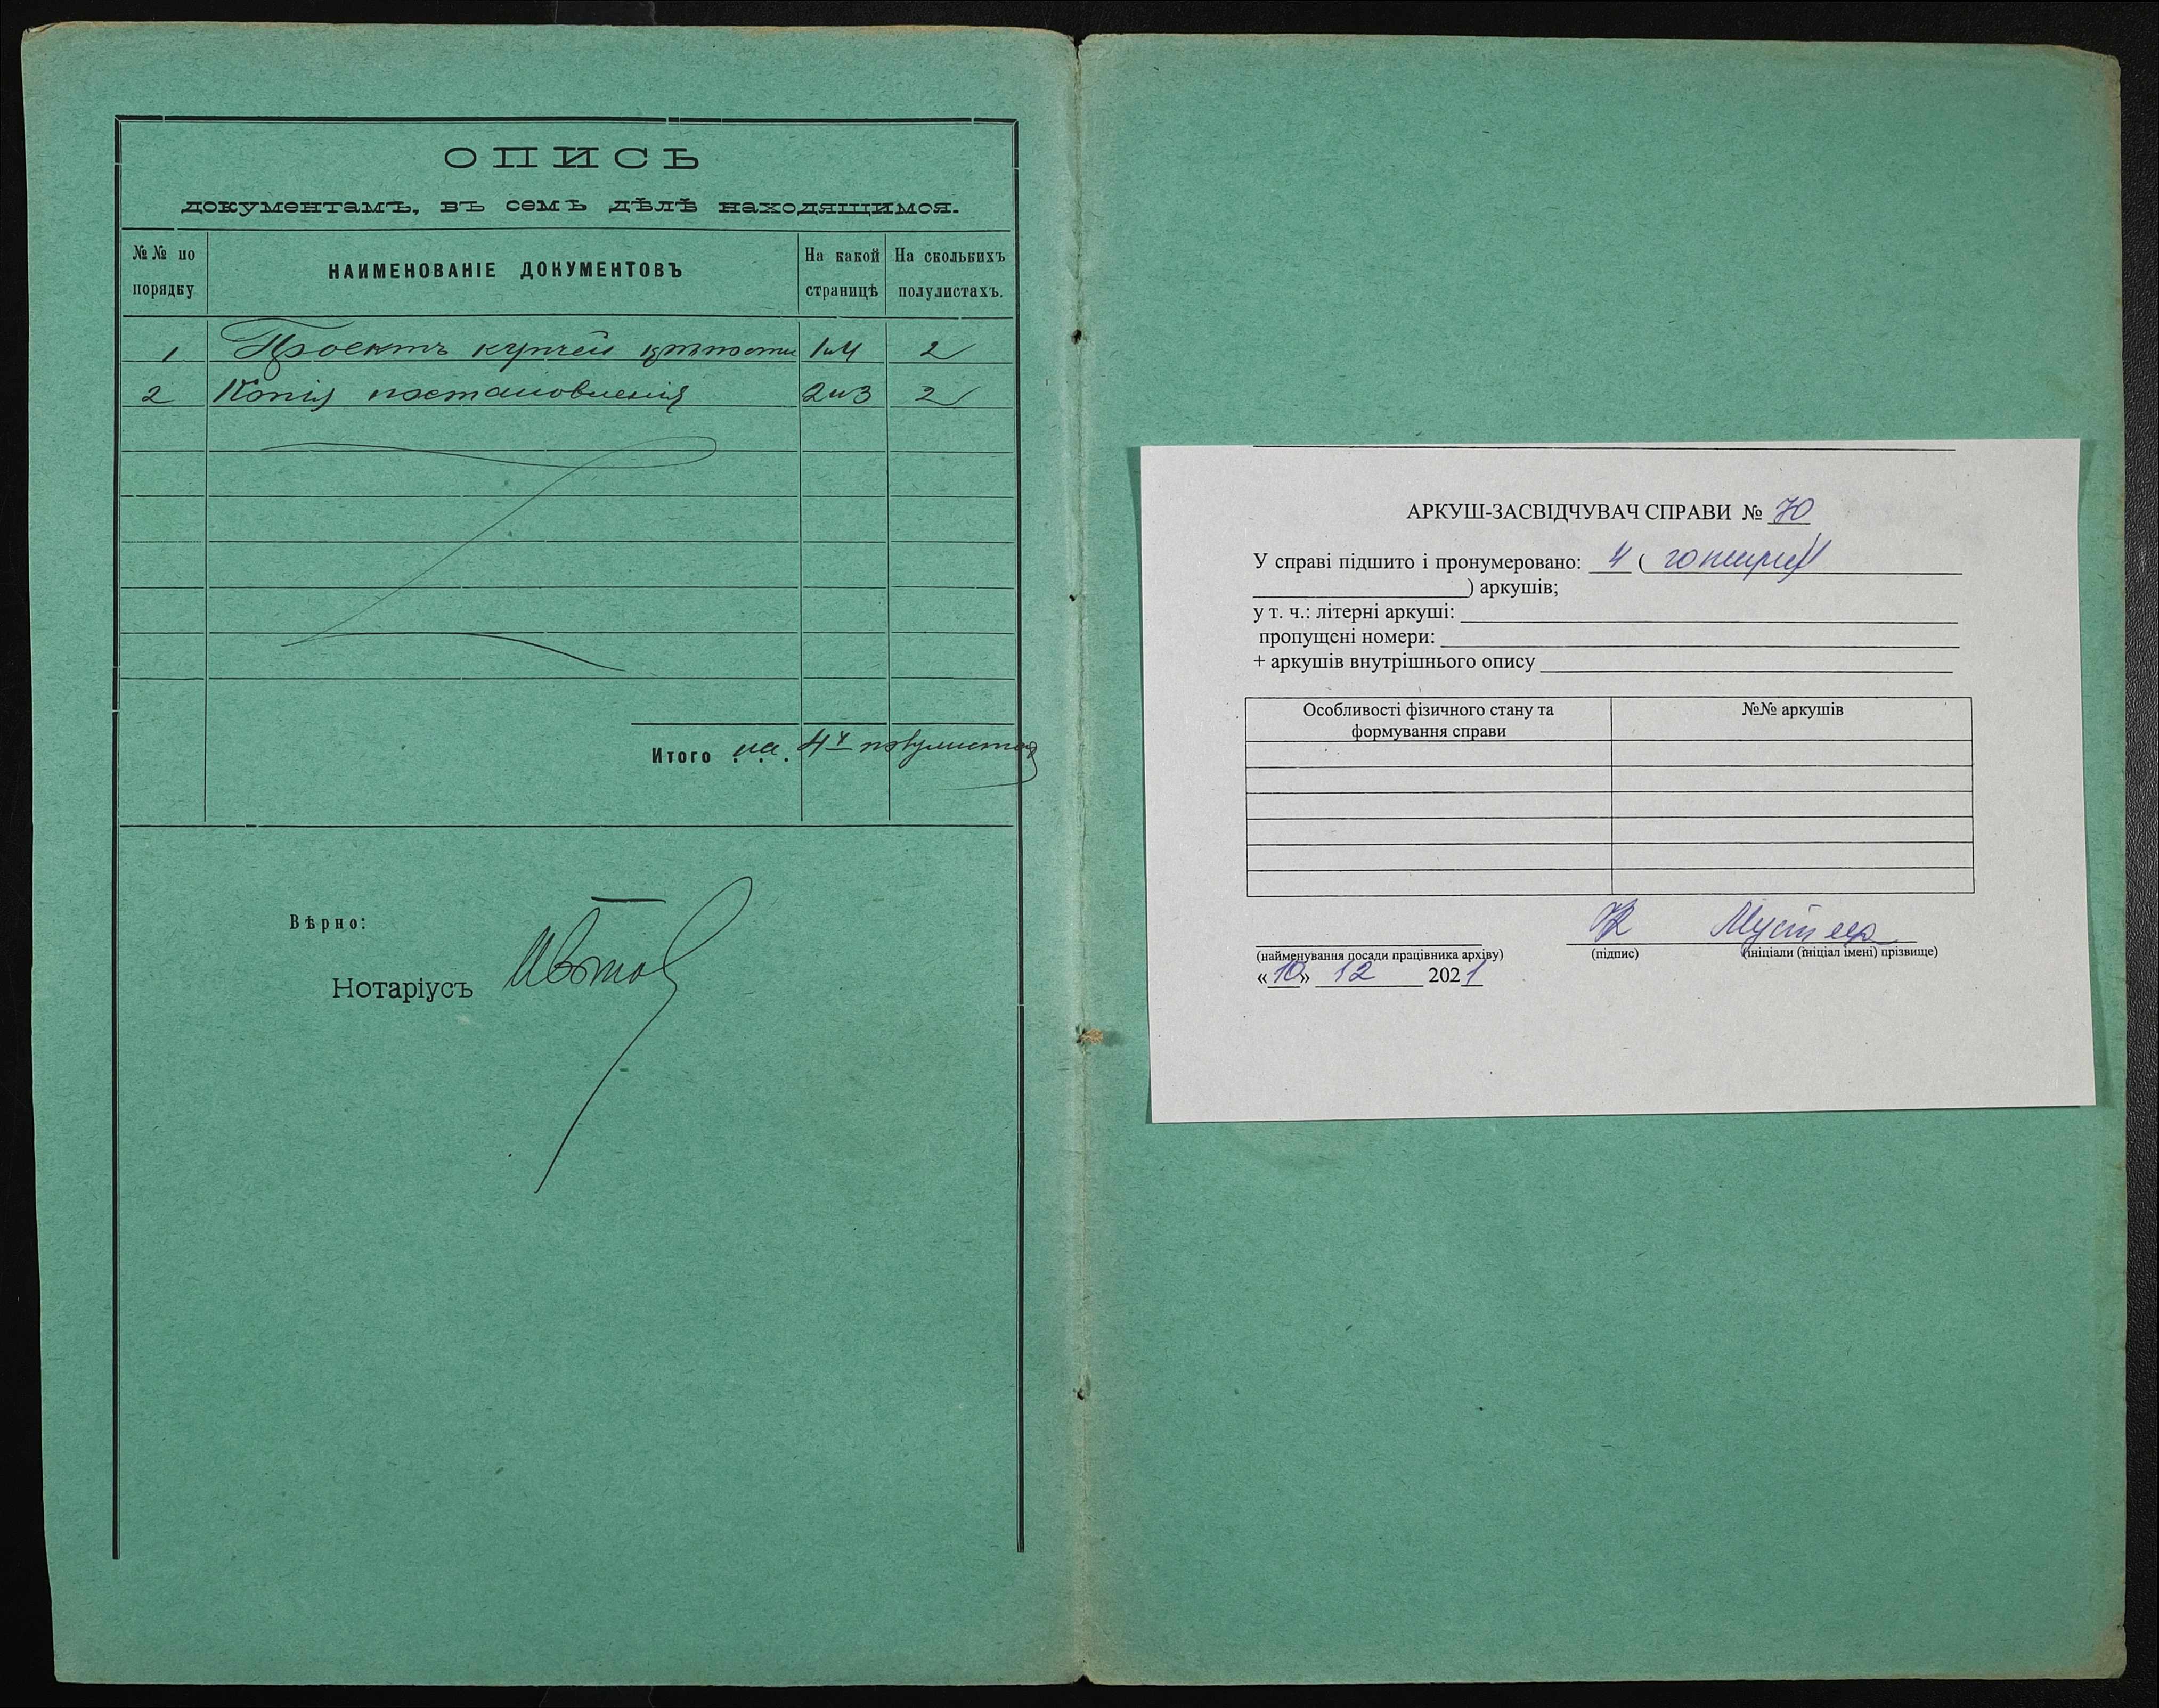 ОПИСЬ
документамъ, въ семъ дѣлѣ находящимся.
№№ по порядку
НАИМЕНОВАНІЕ ДОКУМЕНТОВЪ
На какой страницѣ
На сколькихъ полулистахъ.
1 Проектъ купчей крѣпости 1 и 4 2
2 Копія постановленія 2 и 3 2
Итого . . . на 4х полулистах
Вѣрно:
Нотаріусъ
АРКУШ-ЗАСВІДЧУВАЧ СПРАВИ № 70
У справі підшито і пронумеровано: 4 ( чотири
) аркушів;
у т. ч.: літерні аркуші:
пропущені номери:
+ аркушів внутрішнього опису
Особливості фізичного стану та формування справи
№№ аркушів
(найменування посади працівника архіву)
(підпис)
(ініціали (ініціал імені) прізвище)
«10» 12 2021